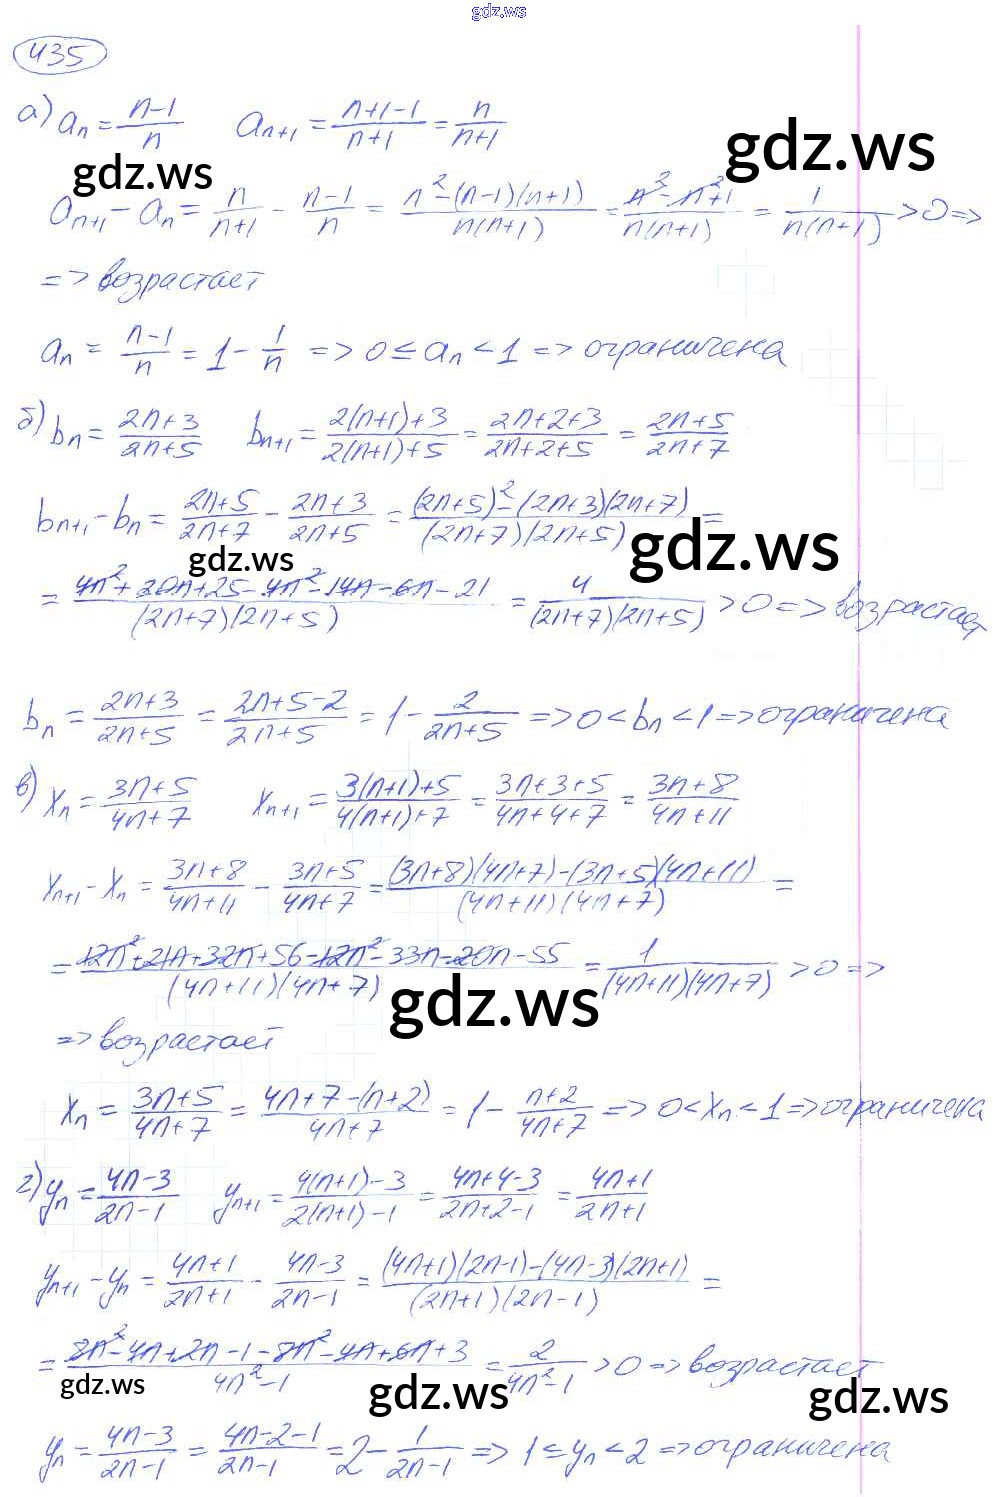 gdz.ws
435
а) aₙ = (n-1)/n    aₙ₊₁ = (n+1-1)/(n+1) = n/(n+1)
gdz.ws gdz.ws
aₙ₊₁ - aₙ = n/(n+1) - (n-1)/n = (n²-(n-1)(n+1))/(n(n+1)) = (n²-n²+1)/(n(n+1)) = 1/(n(n+1)) > 0 =>
=> возрастает
aₙ = (n-1)/n = 1 - 1/n => 0 ≤ aₙ < 1 => ограничена
б) bₙ = (2n+3)/(2n+5)    bₙ₊₁ = (2(n+1)+3)/(2(n+1)+5) = (2n+2+3)/(2n+2+5) = (2n+5)/(2n+7)
bₙ₊₁ - bₙ = (2n+5)/(2n+7) - (2n+3)/(2n+5) = ((2n+5)²-(2n+3)(2n+7))/((2n+7)(2n+5)) =
gdz.ws gdz.ws
= (4n²+20n+25-4n²-14n-6n-21)/((2n+7)(2n+5)) = 4/((2n+7)(2n+5)) > 0 => возрастает
bₙ = (2n+3)/(2n+5) = (2n+5-2)/(2n+5) = 1 - 2/(2n+5) => 0 < bₙ < 1 => ограничена
в) xₙ = (3n+5)/(4n+7)    xₙ₊₁ = (3(n+1)+5)/(4(n+1)+7) = (3n+3+5)/(4n+4+7) = (3n+8)/(4n+11)
xₙ₊₁ - xₙ = (3n+8)/(4n+11) - (3n+5)/(4n+7) = ((3n+8)(4n+7)-(3n+5)(4n+11))/((4n+11)(4n+7)) =
= (12n²+21n+32n+56-12n²-33n-20n-55)/((4n+11)(4n+7)) = 1/((4n+11)(4n+7)) > 0 =>
gdz.ws
=> возрастает
xₙ = (3n+5)/(4n+7) = (4n+7-(n+2))/(4n+7) = 1 - (n+2)/(4n+7) => 0 < xₙ < 1 => ограничена
г) yₙ = (4n-3)/(2n-1)    yₙ₊₁ = (4(n+1)-3)/(2(n+1)-1) = (4n+4-3)/(2n+2-1) = (4n+1)/(2n+1)
yₙ₊₁ - yₙ = (4n+1)/(2n+1) - (4n-3)/(2n-1) = ((4n+1)(2n-1)-(4n-3)(2n+1))/((2n+1)(2n-1)) =
= (8n²-4n+2n-1-8n²-4n+6n+3)/(4n²-1) = 2/(4n²-1) > 0 => возрастает
gdz.ws gdz.ws gdz.ws
yₙ = (4n-3)/(2n-1) = (4n-2-1)/(2n-1) = 2 - 1/(2n-1) => 1 ≤ yₙ < 2 => ограничена